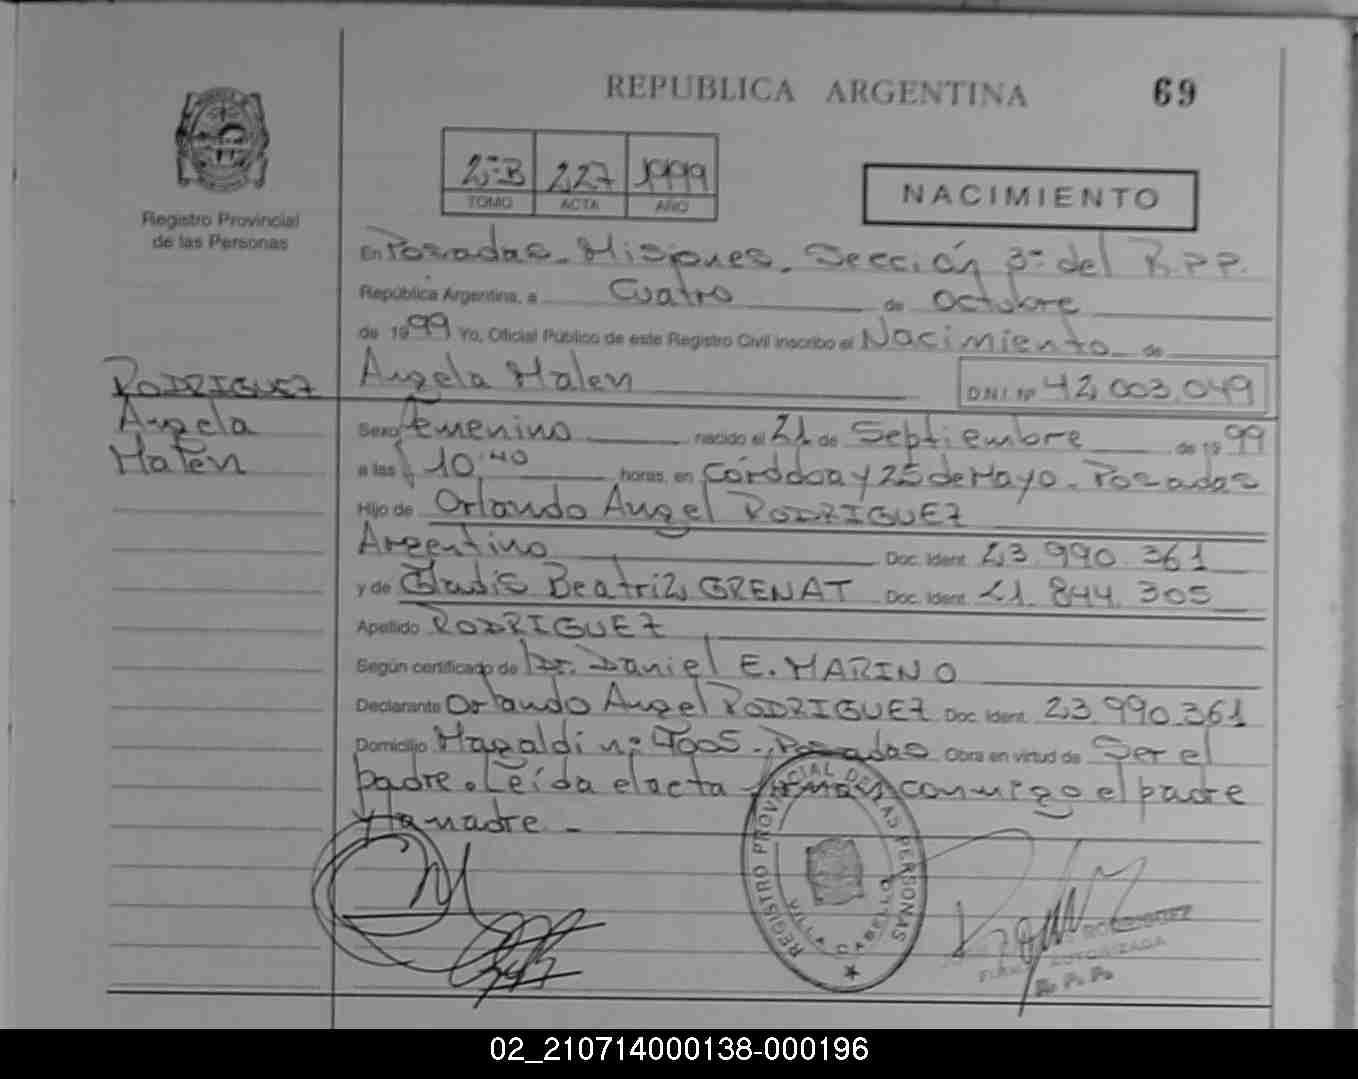 REPUBLICA ARGENTINA
69
Registro Provincial
de las Personas
2º-B 227 1999
TOMO ACTA AÑO
NACIMIENTO
En Posadas - Misiones - Sección 3º del R.P.P.
República Argentina, a Cuatro de Octubre
de 1999 Yo, Oficial Público de este Registro Civil inscribo el Nacimiento de
Angela Malen D.N.I. Nº 42.003.049
RODRIGUEZ
Angela
Malen
Sexo femenino nacido el 21 de Septiembre de 1999
a las 10:40 horas, en Córdoba y 25 de Mayo - Posadas
Hijo de Orlando Angel RODRIGUEZ
Argentino Doc. Ident. 23.990.361
y de Gladis Beatriz GRENAT Doc. Ident. 21.844.305
Apellido RODRIGUEZ
Según certificado de Dr. Daniel E. MARINO
Declarante Orlando Angel RODRIGUEZ Doc. Ident. 23.990.361
Domicilio Magaldi nº Posadas Obra en virtud de Ser el
padre. Leída el acta firman conmigo el padre
y la madre -
REGISTRO PROVINCIAL DE LAS PERSONAS
VILLA CABELLO
RODRIGUEZ
FIRMA AUTORIZADA
R. P. P.
02_210714000138-000196